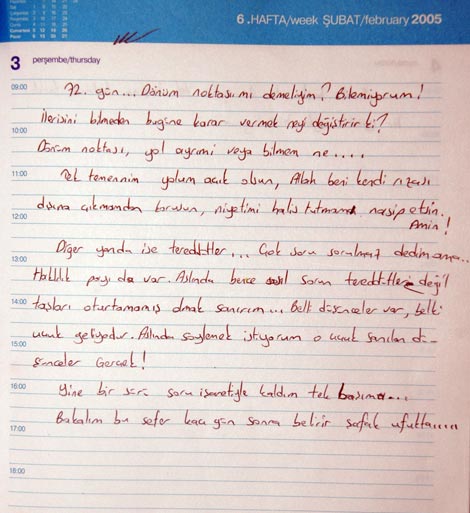 6.HAFTA/week ŞUBAT/february 2005
3 perşembe/thursday
09:00
72. gün... Dönüm noktası mı demeliyim? Bilemiyorum!
İlerisini bilmeden bugüne karar vermek neyi değiştirir ki?
10:00
Dönüm noktası, yol ayrımı veya bilmem ne....
11:00
Tek temennim yolum açık olsun, Allah beni kendi rızası
12:00
dışına çıkmamdan korusun, niyetimi halis tutmamı nasip etsin.
Amin!
Diğer yanda ise tereddütler... Çok soru sorulmaz dedim ama..
13:00
Haklılık payı da var. Aslında bence asıl sorun tereddütler değil
14:00
taşları oturtamamış olmak sanırım... Belli düşünceler var, belki
uçuk geliyodur. Aslında söylemek istiyorum o uçuk sanılan dü-
15:00
şünceler Gerçek!
16:00
Yine bir sürü soru işaretiyle kaldım tek başıma...
Bakalım bu sefer kaç gün sonra belirir şafak ufukta....
17:00
18:00